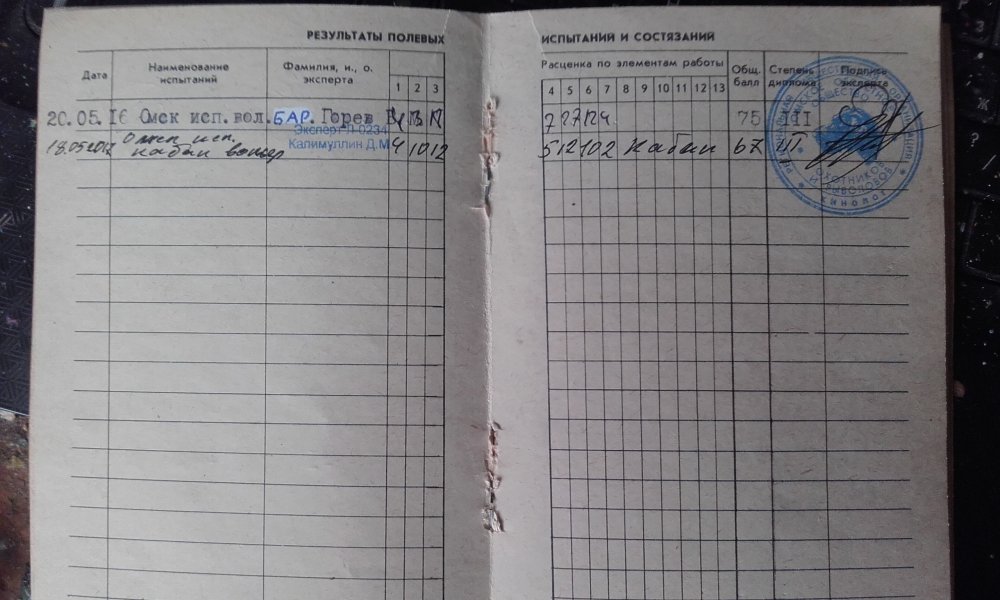 РЕЗУЛЬТАТЫ ПОЛЕВЫХ ИСПЫТАНИЙ И СОСТЯЗАНИЙ
Дата Наименование испытаний Фамилия, и., о. эксперта Расценка по элементам работы Общ. балл Степень диплома Подпись эксперта
1 2 3 4 5 6 7 8 9 10 11 12 13
20.05.16 Омск исп. вол. БАР. Горев 75 III
Эксперт П-0234
18.05.2017 Омск исп. Калимуллин Д.М. 4 10 12 5 12 10 2 Кабан 67 III
кабан вольер
ОБЩЕСТВО
ОХОТНИКОВ
И РЫБОЛОВОВ
КИНОЛОГ